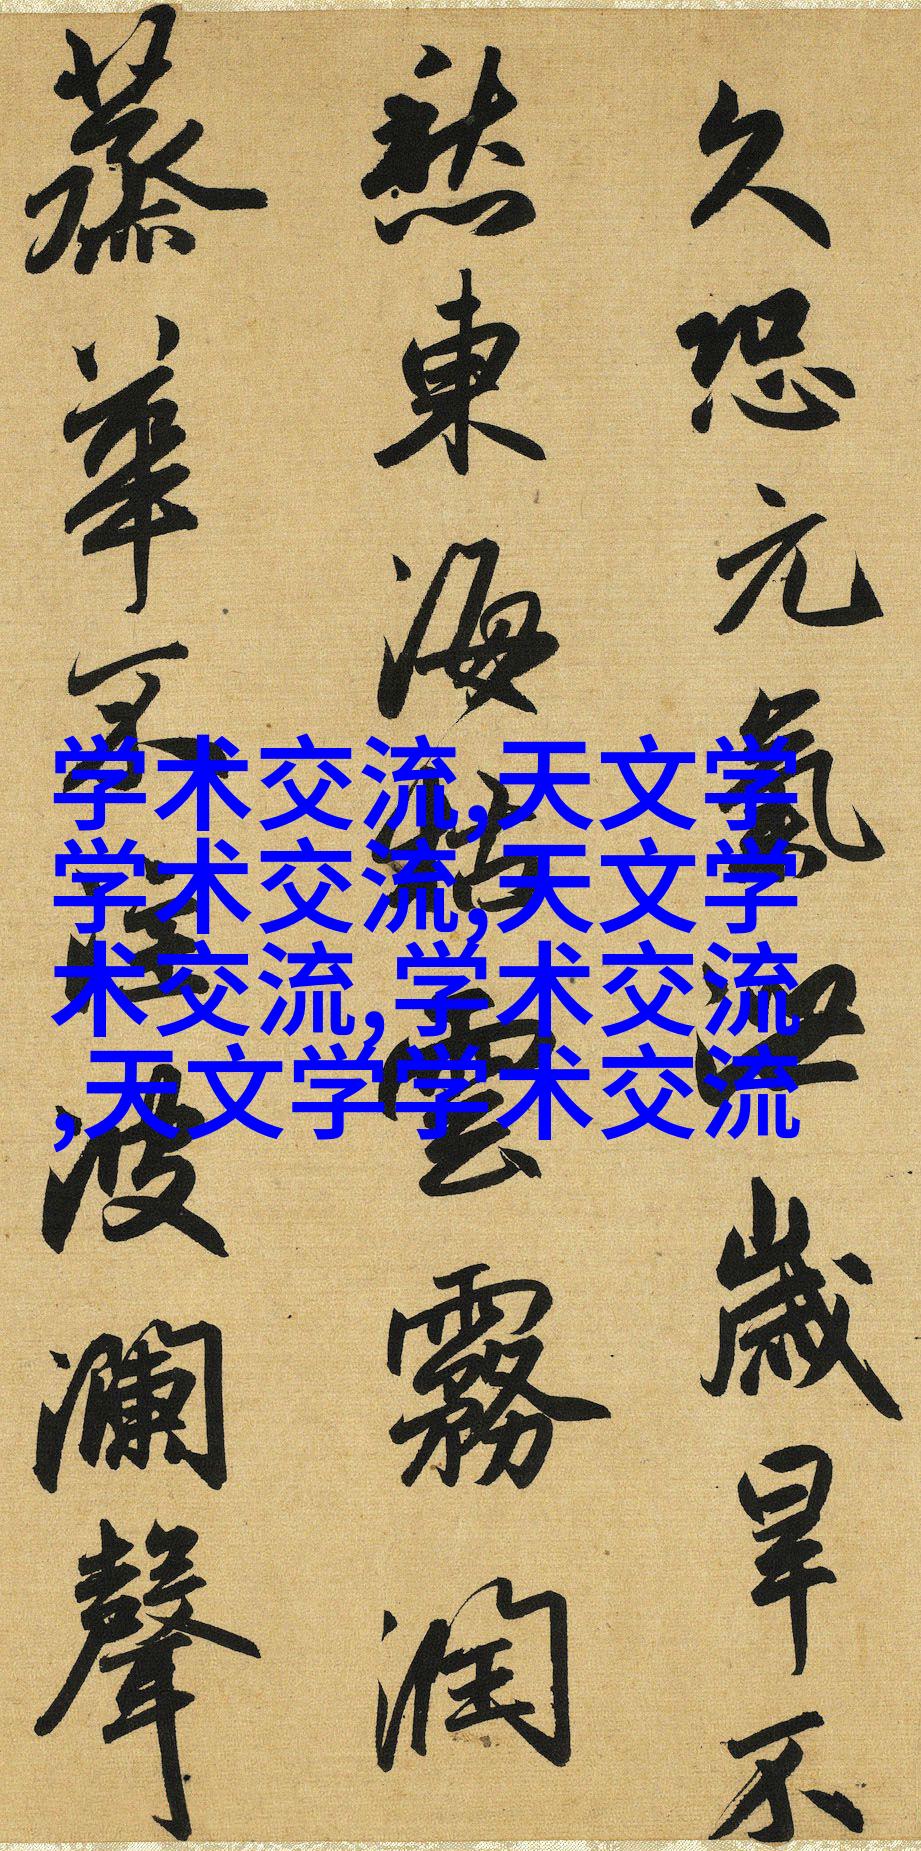 久恐元氣泄歲旱不
愁東海枯雲霧潤
蒸華不注波瀾聲
学术交流,天文学
学术交流,天文学
术交流,学术交流
,天文学学术交流